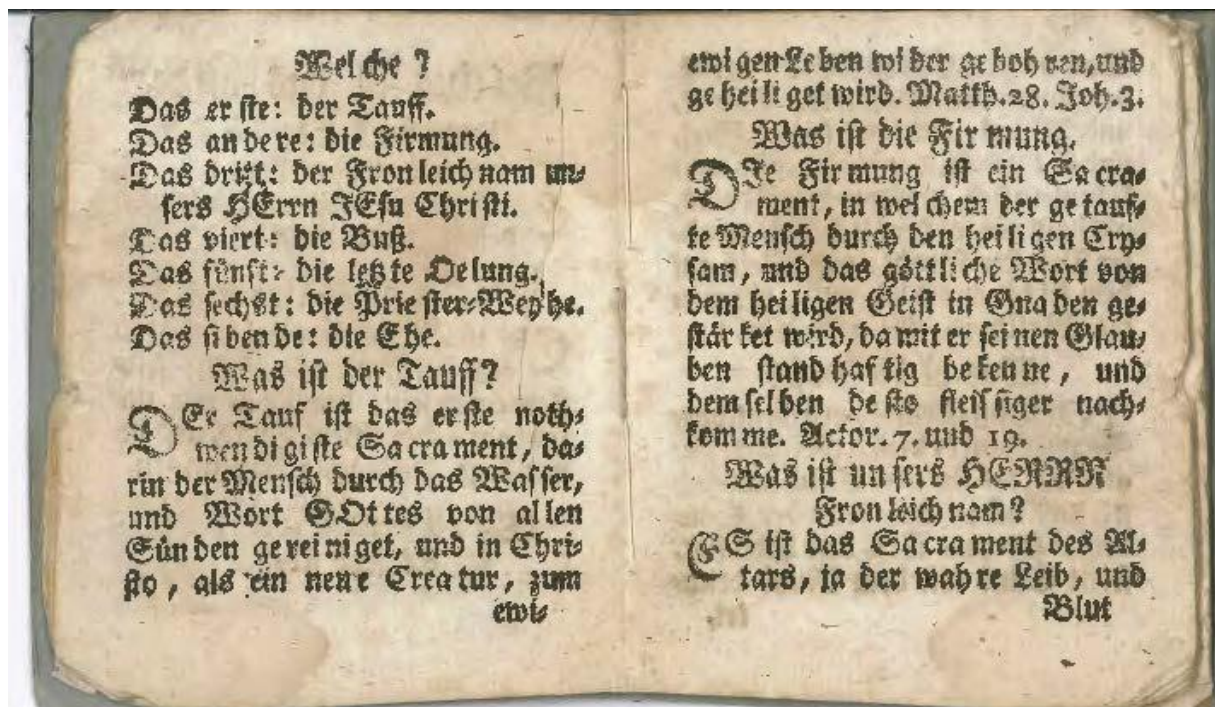 Welche?
Das er ste: der Tauff.
Das an de re: die Firmung.
Das dritt: der Fron leich nam un-
sers HErrn JEsu Chri sti.
Das viert: die Buß.
Das fünft: die letz te Oelung.
Das sechst: die Prie ster-Weyhe.
Das si ben de: die Ehe.
Was ist der Tauff?
DEr Tauf ist das er ste noth-
wen di gi ste Sa cra ment, da-
rin der Mensch durch das Was ser,
und Wort GOt tes von al len
Sün den ge rei ni get, und in Chri-
sto, als ein neue Crea tur, zum
ewi-
ewi gen Le ben wi der ge boh ren, und
ge hei li get wird. Matth. 28. Joh. 3.
Was ist die Fir mung.
DIe Fir mung ist ein Sa cra-
ment, in wel chem der ge tauf-
te Mensch durch den hei li gen Cry-
sam, und das göttli che Wort von
dem hei ligen Geist in Gna den ge-
stär ket wird, da mit er sei nen Glau-
ben stand haf tig be ken ne, und
dem sel ben de sto fleis si ger nach-
kom me. Actor. 7. und 19.
Was ist un sers HERRN
Fron leich nam?
ES ist das Sa cra ment des Al-
tars, ja der wahre Leib, und
Blut